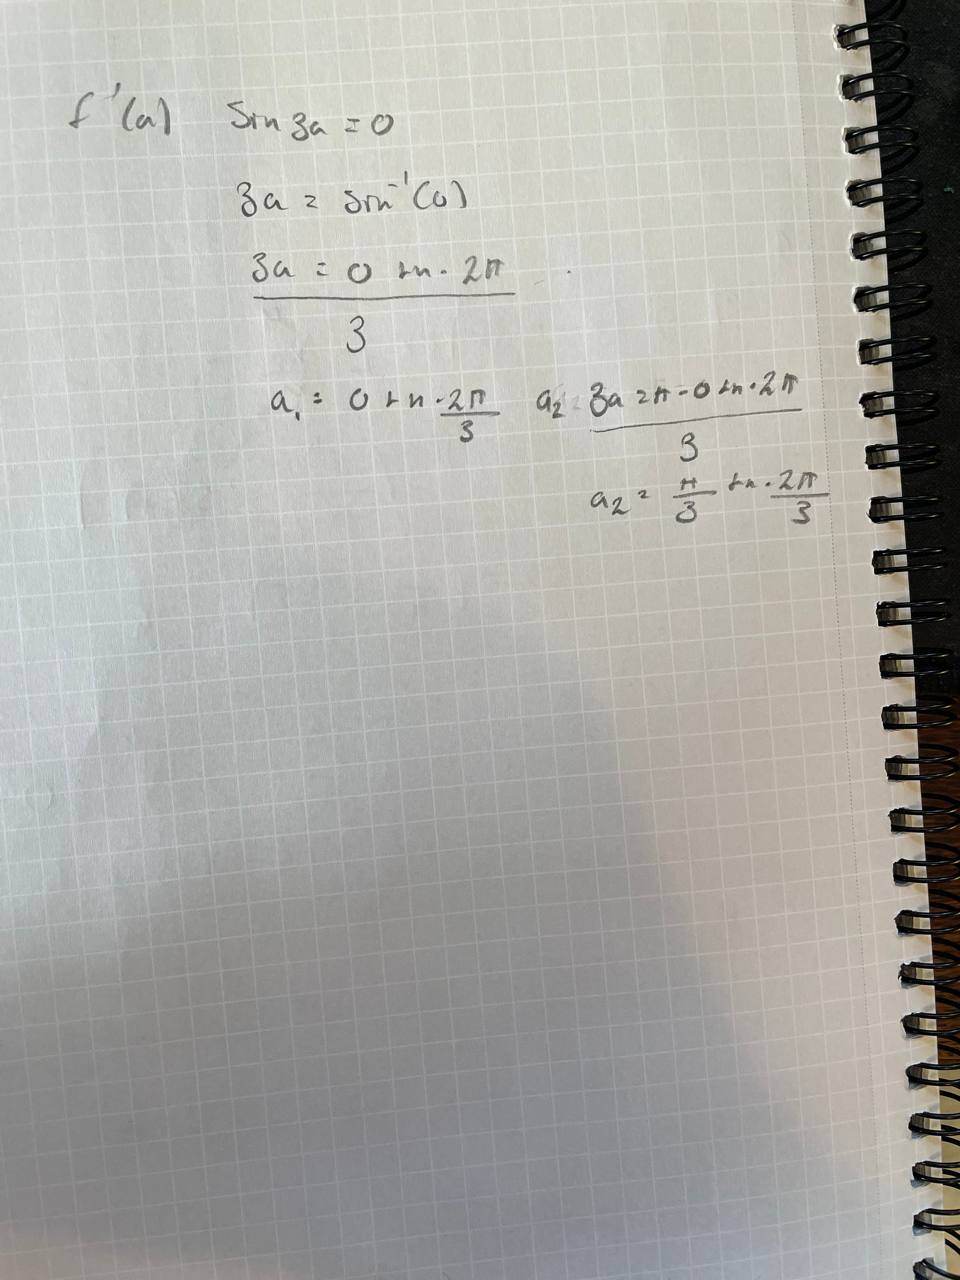 f'(a) sin 3a = 0
3a = sin⁻¹(0)
3a = 0 + n · 2π
3
a₁ = 0 + n · 2π/3 a₂ = 3a = π - 0 + n · 2π
3
a₂ = π/3 + n · 2π/3